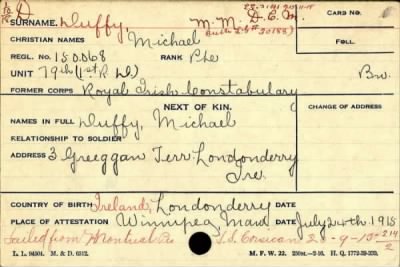 D
SURNAME. Duffy, M.M. D.C.M.
CARD NO.
CHRISTIAN NAMES Michael
FOLL.
REGL. NO. 150068 RANK Pte
UNIT 79th (1st R. D.)
FORMER CORPS Royal Irish Constabulary
NEXT OF KIN.
CHANGE OF ADDRESS
NAMES IN FULL Duffy, Michael
RELATIONSHIP TO SOLDIER
ADDRESS 3 Greeggan Terr Londonderry
Ire.
COUNTRY OF BIRTH Ireland, Londonderry
PLACE OF ATTESTATION Winnipeg, Man DATE July 24th 1915
Sailed from Montreal S.S. Corsican 28-9-15 214/2
L. L. 94504. M. & D. 6512. M. F. W. 22. H. Q. 1772-39-339.